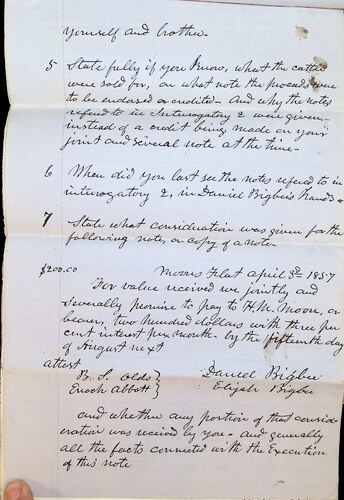 yourself and brother
5 State fully if you know, what the cattle
were sold for, on what note the proceeds were
to be endorsed or credited - And why the notes
refered to in Interogatory 2 were given
instead of a credit being made on your
joint and several note at the time -
6 When did you last see the notes refered to in
interogatory 2, in Daniel Bigbee's hands
7 State what consideration was given for the
following note, or copy of a note
$200.00 Moons Flat april 3d 1857
For value received we jointly and
severally promise to pay to H. M. Moon, or
bearer, two hundred dollars with three per
cent interest per month - by the fifteenth day
of August next
attest
B. S. Olds } Daniel Bigbee
Enoch Abbott } Elijah Bigbee
and whether any portion of that consid-
eration was recived by you - And generally
all the facts connected with the Execution
of this note